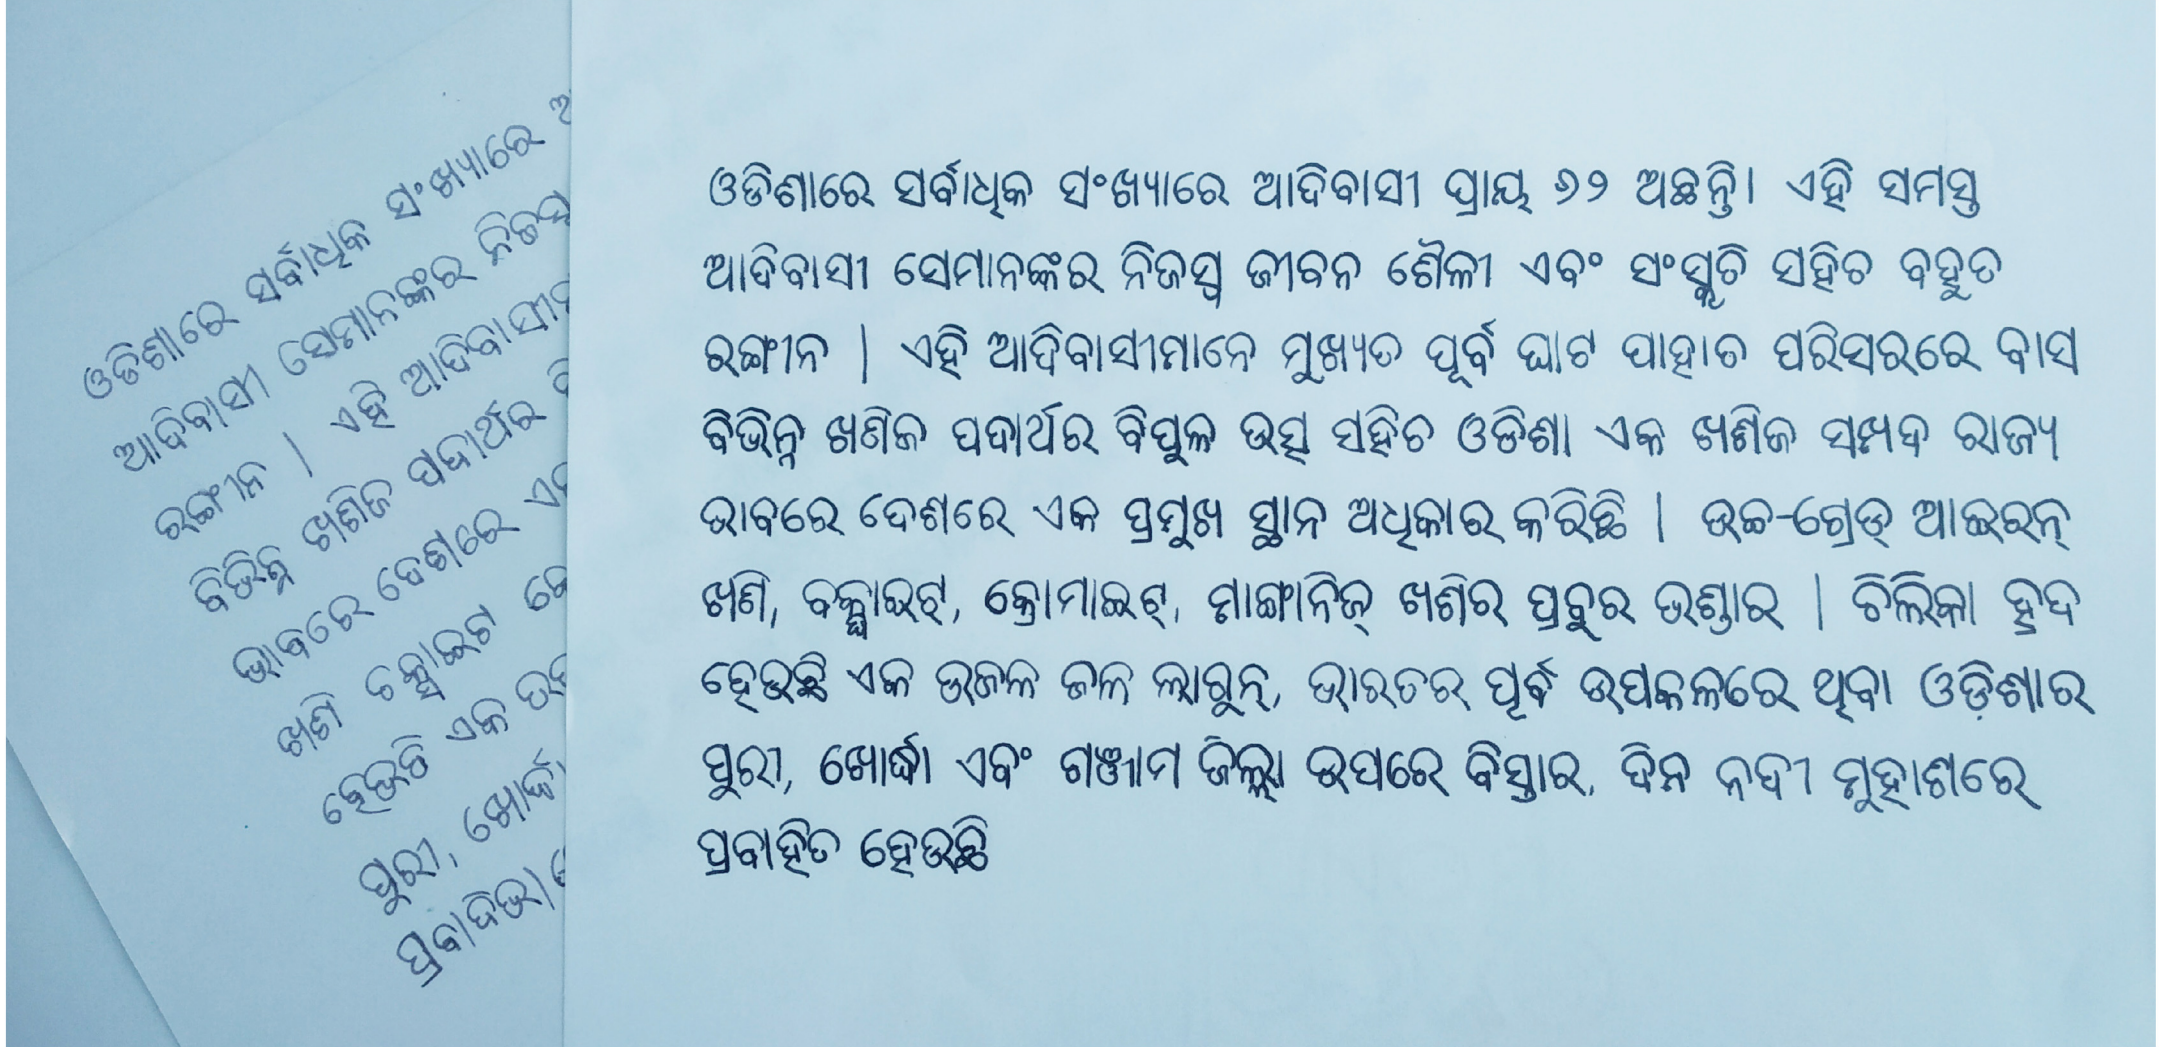 ଓଡିଶାରେ ସର୍ବାଧିକ ସଂଖ୍ୟାରେ
ଆଦିବାସୀ ସେମାନଙ୍କର ନିଜସ୍ୱ
ରଙ୍ଗୀନ | ଏହି ଆଦିବାସୀମ
ବିଭିନ୍ନ ଖଣିଜ ପଦାର୍ଥର
ଭାବରେ ଦେଶରେ ଏକ
ଖଣି
ହେଉଚି ଏକ
ପୁରୀ, ଖୋର୍ଦ୍ଧା
ଓଡିଶାରେ ସର୍ବାଧିକ ସଂଖ୍ୟାରେ ଆଦିବାସୀ ପ୍ରାୟ ୬୨ ଅଛନ୍ତି। ଏହି ସମସ୍ତ
ଆଦିବାସୀ ସେମାନଙ୍କର ନିଜସ୍ୱ ଜୀବନ ଶୈଳୀ ଏବଂ ସଂସ୍କୃତି ସହିତ ବହୁତ
ରଙ୍ଗୀନ | ଏହି ଆଦିବାସୀମାନେ ମୁଖ୍ୟତ ପୂର୍ବ ଘାଟ ପାହାଡ ପରିସରରେ ବାସ
ବିଭିନ୍ନ ଖଣିଜ ପଦାର୍ଥର ବିପୁଳ ଉତ୍ସ ସହିତ ଓଡିଶା ଏକ ଖଣିଜ ସମ୍ପଦ ରାଜ୍ୟ
ଭାବରେ ଦେଶରେ ଏକ ପ୍ରମୁଖ ସ୍ଥାନ ଅଧିକାର କରିଛି | ଉଚ୍ଚ-ଗ୍ରେଡ୍ ଆଇରନ୍
ଖଣି, ବକ୍ସାଇଟ୍, କ୍ରୋମାଇଟ୍, ମାଙ୍ଗାନିଜ୍ ଖଣିର ପ୍ରବୁର ଭଣ୍ଡାର | ଚିଲିକା ହ୍ରଦ
ହେଉଛି ଏକ ଉଜଳ ଜଳ ଲାଗୁନ୍, ଭାରତର ପୂର୍ବ ଉପକଳରେ ଥିବା ଓଡ଼ିଶାର
ପୁରୀ, ଖୋର୍ଦ୍ଧା ଏବଂ ଗଞ୍ଜାମ ଜିଲ୍ଲା ଉପରେ ବିସ୍ତାର, ଦିନ ନଦୀ ମୁହାଣରେ
ପ୍ରବାହିତ ହେଉଛି